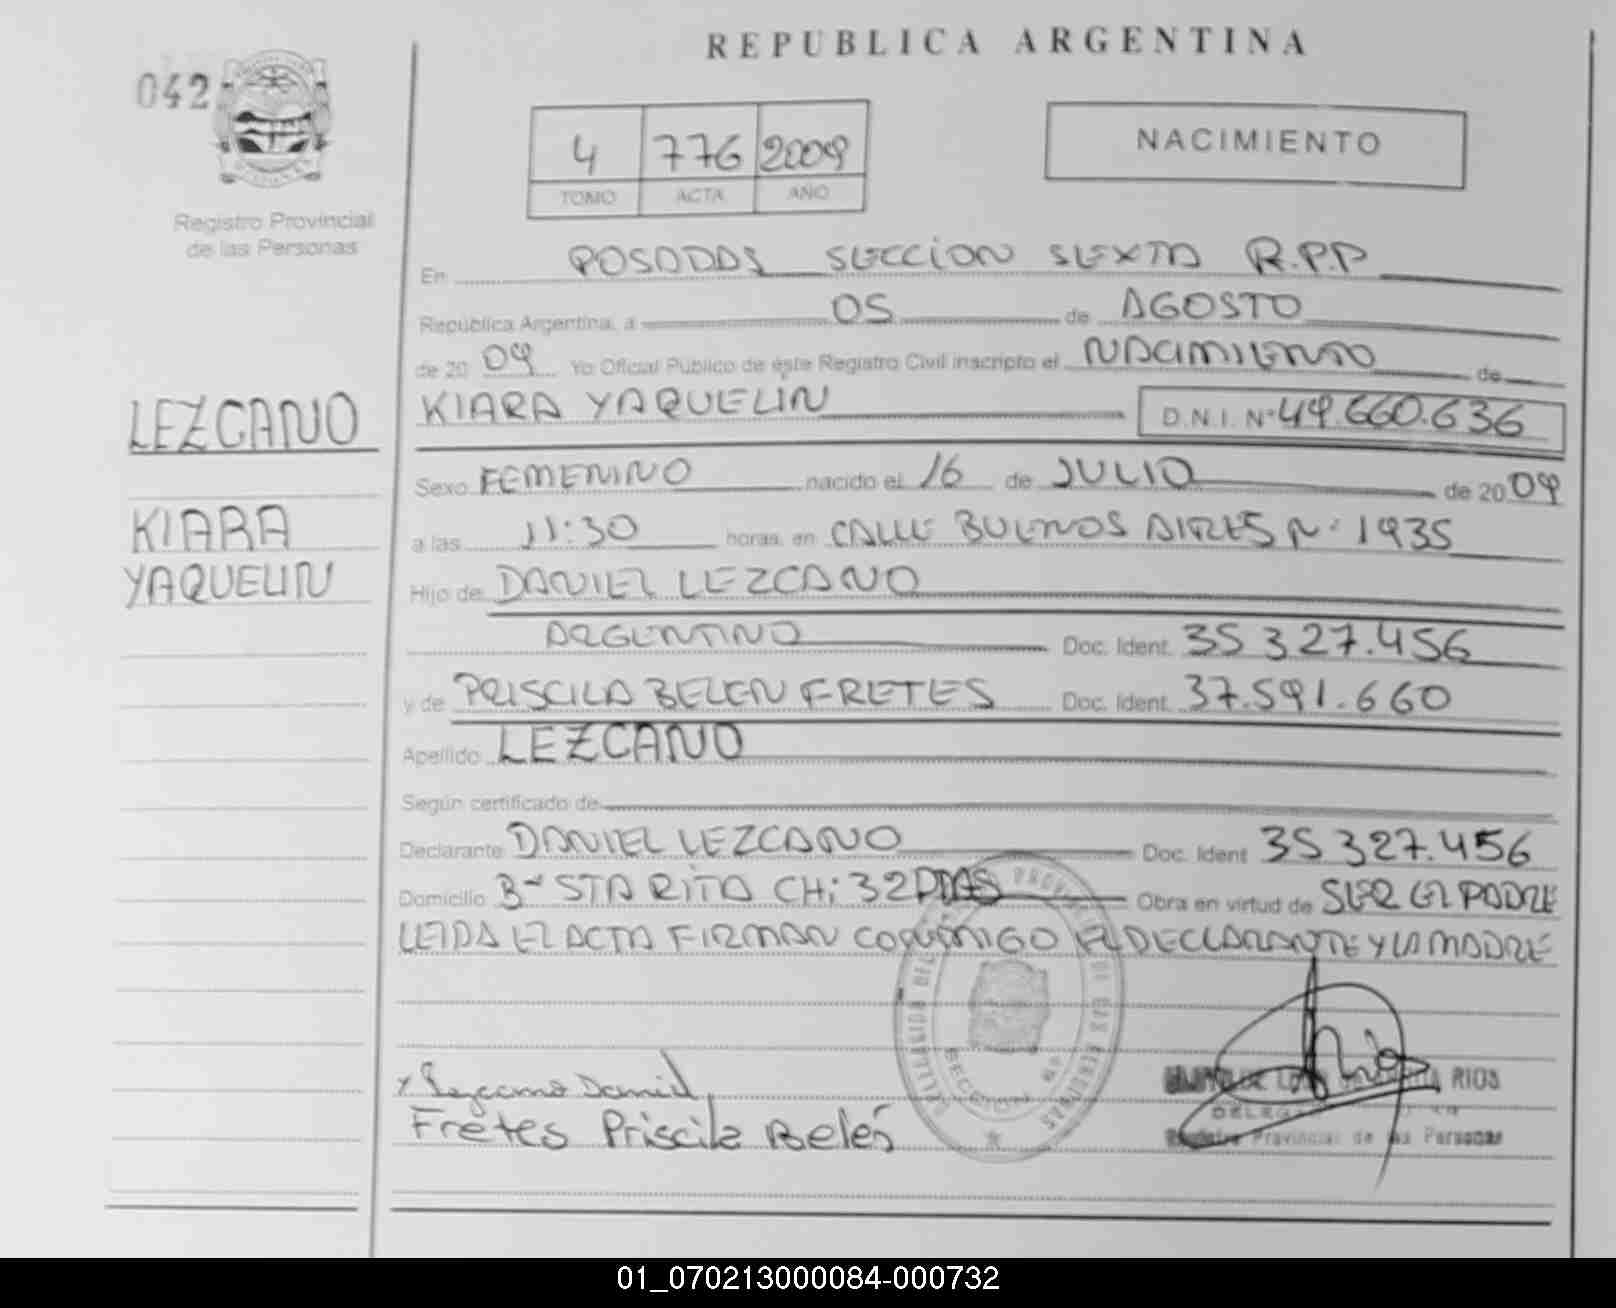 REPUBLICA ARGENTINA
042
4 776 2009
TOMO ACTA AÑO
NACIMIENTO
Registro Provincial
de las Personas
En POSADAS SECCION SEXTA R.P.P
República Argentina, a 05 de AGOSTO
de 20 09 Yo Oficial Público de éste Registro Civil inscripto el NACIMIENTO de
LEZCANO
KIARA YAQUELIN D.N.I. Nº 49.660.636
Sexo FEMENINO nacido el 16 de JULIO de 20 09
KIARA
YAQUELIN
a las 11:30 horas, en CALLE BUENOS AIRES Nº 1935
Hijo de DANIEL LEZCANO
ARGENTINO Doc. Ident. 35 327.456
y de PRISCILA BELEN FRETES Doc. Ident. 37.591.660
Apellido LEZCANO
Según certificado de
Declarante DANIEL LEZCANO Doc. Ident 35 327.456
Domicilio Bº STA RITA CH: 32 PDAS Obra en virtud de SER EL PADRE
LEIDA EL ACTA FIRMAN CONMIGO EL DECLARANTE Y LA MADRE
x Lezcano Daniel
Fretes Priscila Belén
SECCION 6ª
RIOS
Registro Provincial de las Personas
01_070213000084-000732